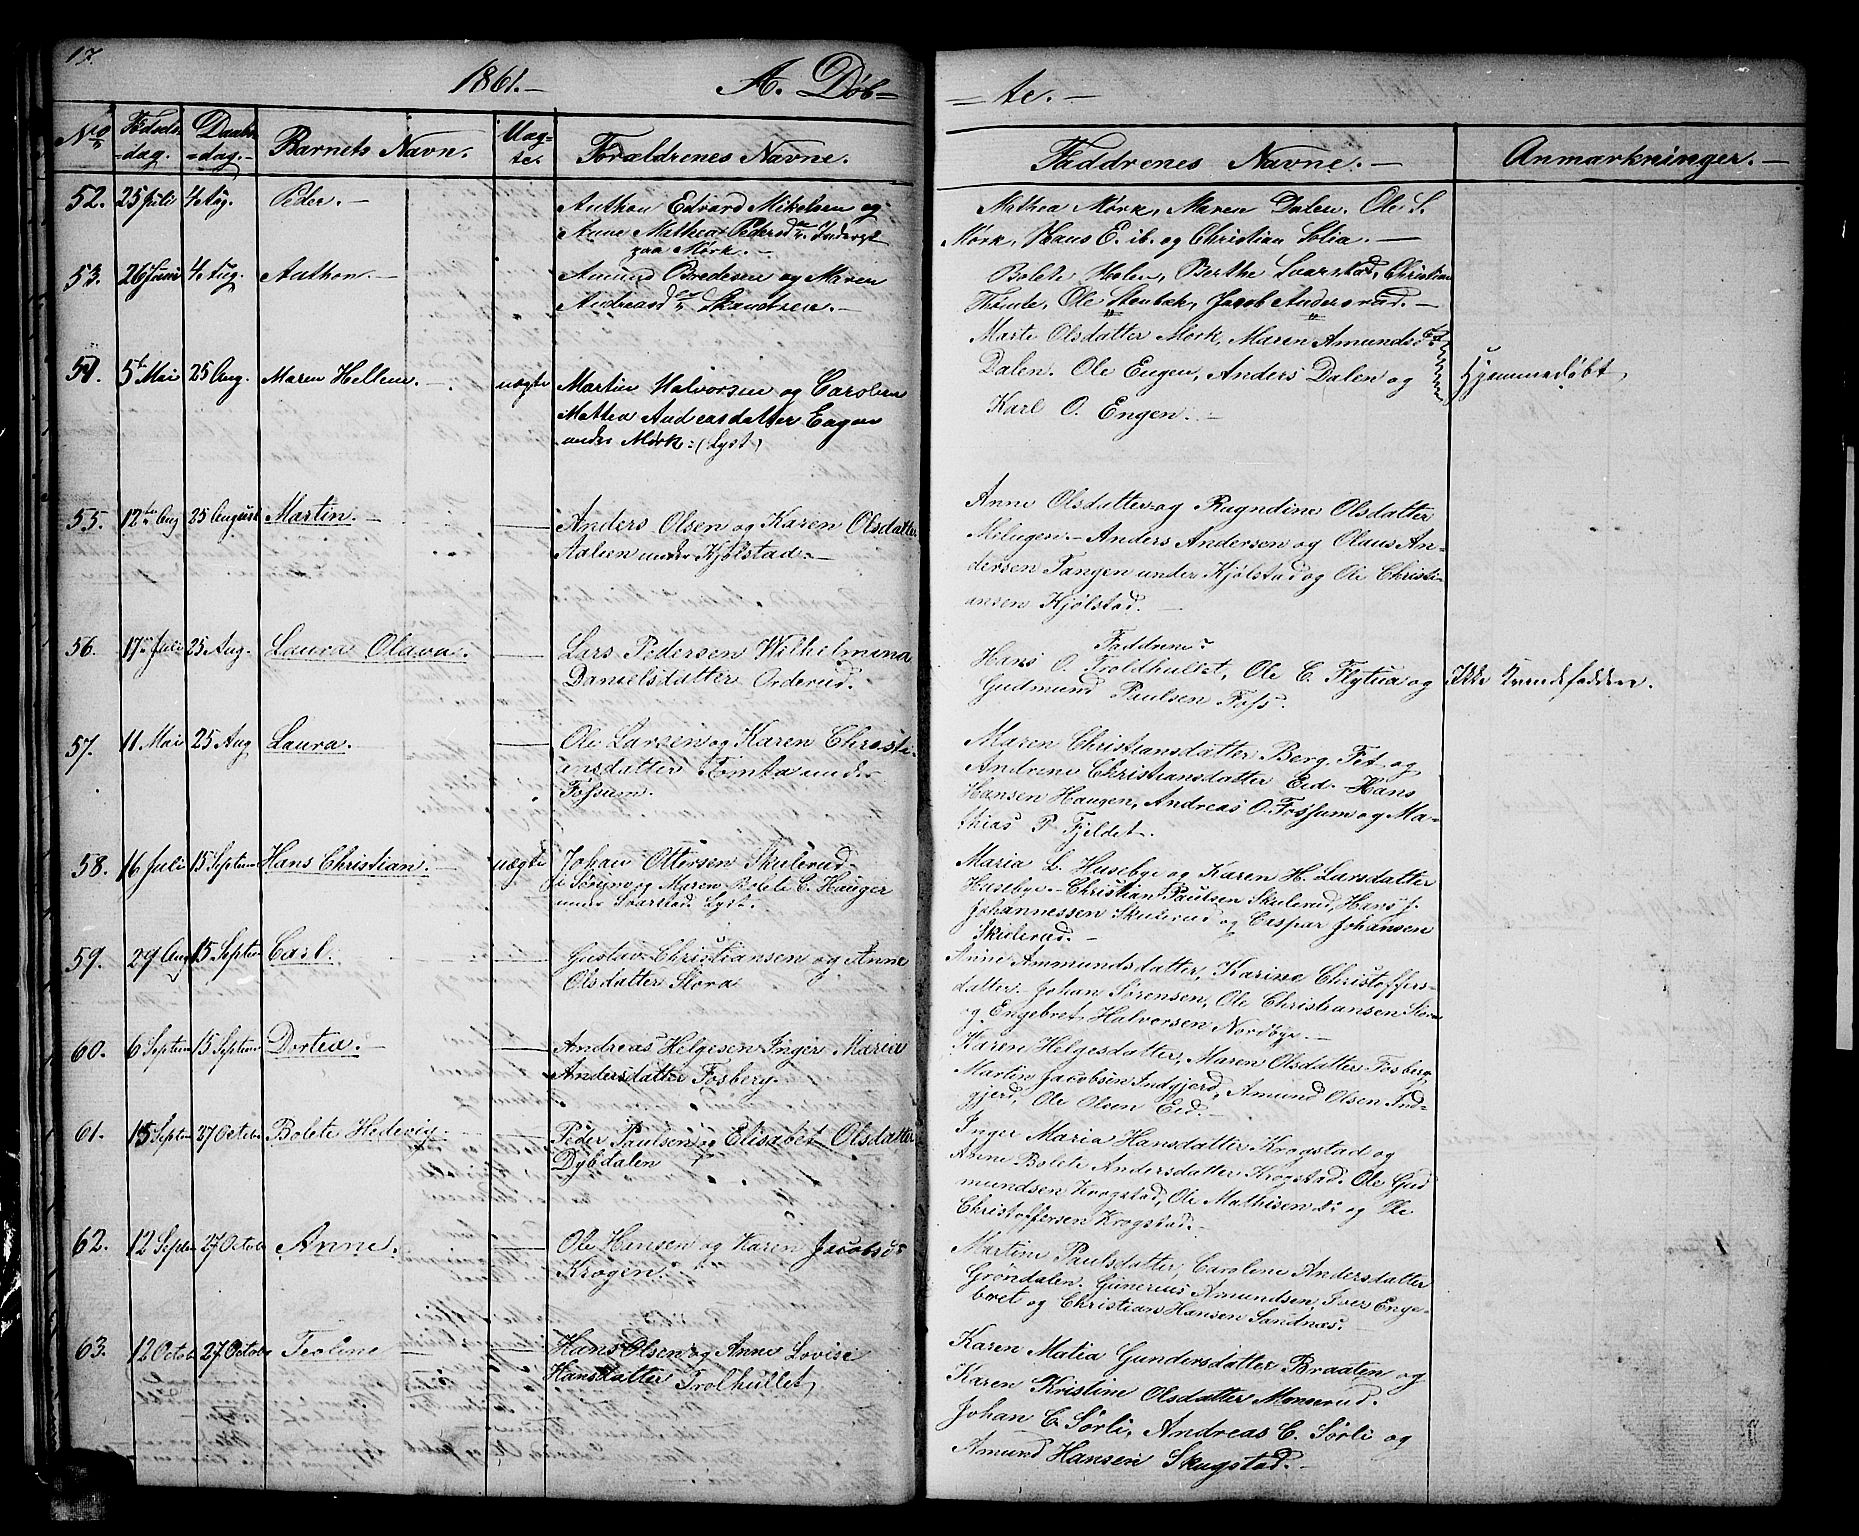 17.
1861.-
A. Døb=
= te. -
No
Fødsels
=dag.
Daabs
=dag.-
Barnets Navn.
Uæg=
te.
Forældrenes Navne.
Faddrenes Navne. -
Anmærkninger. -
52. 25 Juli 4 Aug. Peder. -
Anthon Edvard Mikelsen og
Anne Mathea Pedersd
paa Mørk. -
Mathea Mørk, Maren Dalen. Ole L.
Mørk, Hans E. ib. og Christian Lolia. -
53. 26 Juni 4 Aug. Anthon. -
Amund Bredesen og Maren
Andreasd
Bolete Holen, Berthe Svarstad, Christian
Tomte, Ole Stenbæk, Jacob Andersrud. -
54. 5te Mai 25 Aug. Maren Hellene. - uægte
Martin Halvorsen og Caroline
Mathea Andreasdatter Engen
under Mørk: (Lyst)
Marte Olsdatter Mørk, Maren Amunds
Dalen. Ole Engen, Anders Dalen og
Karl O. Engen. -
Hjemmedøbt
55. 12te Aug 25 August Martin. -
Anders Olsen og Karen Olsdatter
Aalien under Kjølstad. -
Anne Olsdatter og Ragndine Olsdatter
Melnger. - Anders Andersen og Olaus An-
dersen Tangen under Kjølstad og Ole Christi-
ansen Kjølstad. -
56. 17de Juli 25 Aug. Laura Olava.
Lars Pedersen Wilhelmina
Danielsdatter Orderud.
Faddrene
Hans O. Troldhullet, Ole C. Flytua og
Gudmund Paulsen Foss.
Ikke Kvindefaddere.
57. 11 Mai 25 Aug Laura.
Ole Larsen og Karen Christi-
ansdatter Tomta under
Fossum.
Maren Christiansdatter Berg. Fet og
Andrene Christiansdatter Eid. - Hans
Hansen Haugen, Andreas O. Fossum og Ma-
thias P. Fjeldet.
58. 16 Juli 15 Septem Hans Christian. - uægte
Johan Ottersen Skulerud -
i Sørum og Maren Bolete C. Hauger
under Svarstad Lyst. -
Maria L. Husebye og Karen H. Larsdatter
Husebye - Christian Paulsen Skulerud, Hans J.
Johannessen Skulerud og Caspar Johansen
Skulerud. -
59. 29 Aug 15 Septem Carl.
Gustav Christiansen og Anne
Olsdatter Slora
Anne Ammundsdatter, Karine Christoffers-
datter. - Johan Sørensen, Ole Christiansen Slora
og Engebret Halvorsen Nordbye. -
60. 6 Septem 15 Septem Dortea. -
Andreas Helgesen Inger Maria
Andersdatter Fosberg.
Karen Helgesdatter, Maren Olsdatter Fosberg
Martin Jacobsen Indgjerd, Amund Olsen Ind-
gjerd, Ole Olsen Eid. -
61. 15 Septem 27 Octobe Bolete Hedevig.
Peder Paulsen og Elisabet Olsdatter
Dybdalen
Inger Maria Hansdatter Krogstad og
Anne Bolete Andersdatter Krogstad. Ole Gud
mundsen Krogstad, Ole Mathisen do og Ole
Christoffersen Krogstad. -
62. 12 Septem 27 Octobe Anne.
Ole Hansen og Karen Jacobsd
Krogen.
Martine Paulsdatter, Caroline Andersdatter
Grøndalen. Gunerius Amundsen, Iver Enge-
bret og Christian Hansen Sandnæs.
63. 12 Octob 27 Octobe Teoline
Hans Olsen og Anne Lovise
Hansdatter Trolhullet
Karen Matia Gundersdatter Braaten og
Karen Kristine Olsdatter Monserud.
Johan C. Sørli, Andreas C. Sørli og
Amund Hansen Skugstad. -